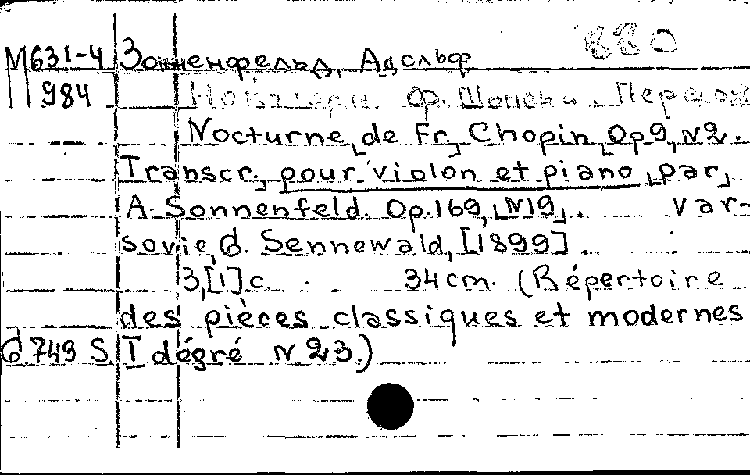 880
М631-4 Зонненфельд, Адольф
984 Ноктюрн. Фр. Шопена. Перелож
Nocturne, de Fr. Chopin, Op 9, N2.
Transcr., pour violon et piano, par,
A. Sonnenfeld. Op. 169, N19,. Var-
sovie, G. Sennewald, [1899].
3,[1] c. 34 cm. (Répertoire
des pièces classiques et modernes
G 749 S. I dégré N 23.)